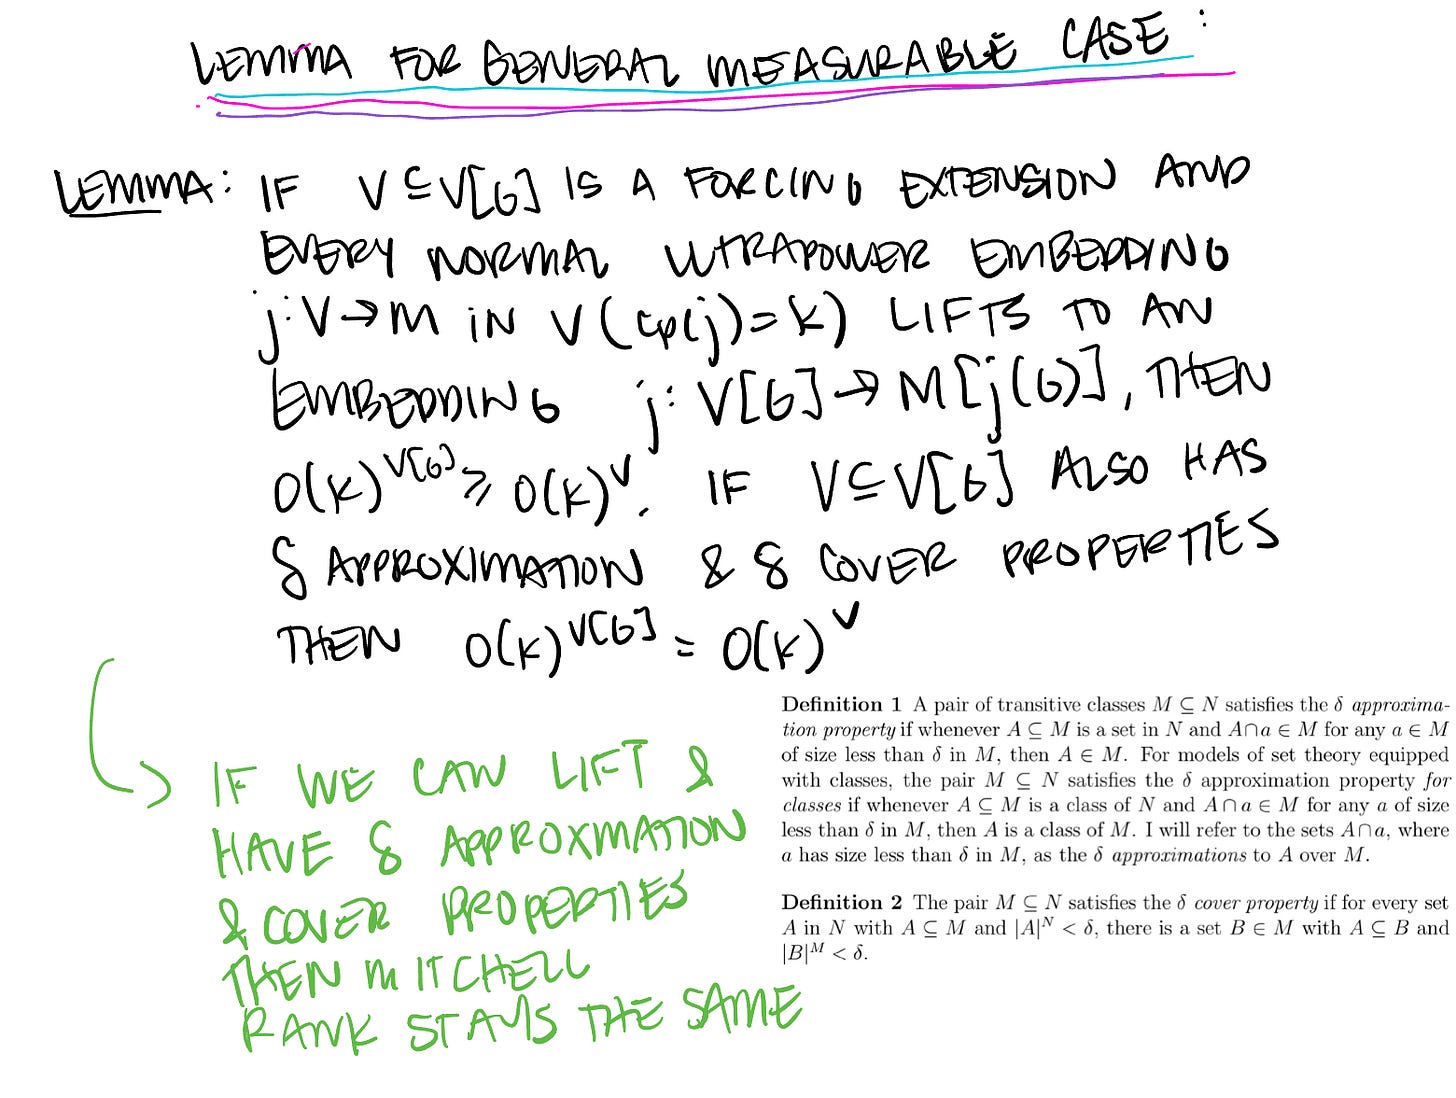 LEMMA FOR GENERAL MEASURABLE CASE:
LEMMA: IF V ⊆ V[G] IS A FORCING EXTENSION AND
EVERY NORMAL ULTRAPOWER EMBEDDING
j: V → M IN V (cp(j) = κ) LIFTS TO AN
EMBEDDING j: V[G] → M[j(G)], THEN
O(κ)^V[G] ≥ O(κ)^V. IF V ⊆ V[G] ALSO HAS
δ APPROXIMATION & δ COVER PROPERTIES
THEN O(κ)^V[G] = O(κ)^V
IF WE CAN LIFT &
HAVE δ APPROXMATION
& COVER PROPERTIES
THEN MITCHELL
RANK STAYS THE SAME
Definition 1 A pair of transitive classes M ⊆ N satisfies the δ approxima-
tion property if whenever A ⊆ M is a set in N and A∩a ∈ M for any a ∈ M
of size less than δ in M, then A ∈ M. For models of set theory equipped
with classes, the pair M ⊆ N satisfies the δ approximation property for
classes if whenever A ⊆ M is a class of N and A∩a ∈ M for any a of size
less than δ in M, then A is a class of M. I will refer to the sets A∩a, where
a has size less than δ in M, as the δ approximations to A over M.
Definition 2 The pair M ⊆ N satisfies the δ cover property if for every set
A in N with A ⊆ M and |A|^N < δ, there is a set B ∈ M with A ⊆ B and
|B|^M < δ.